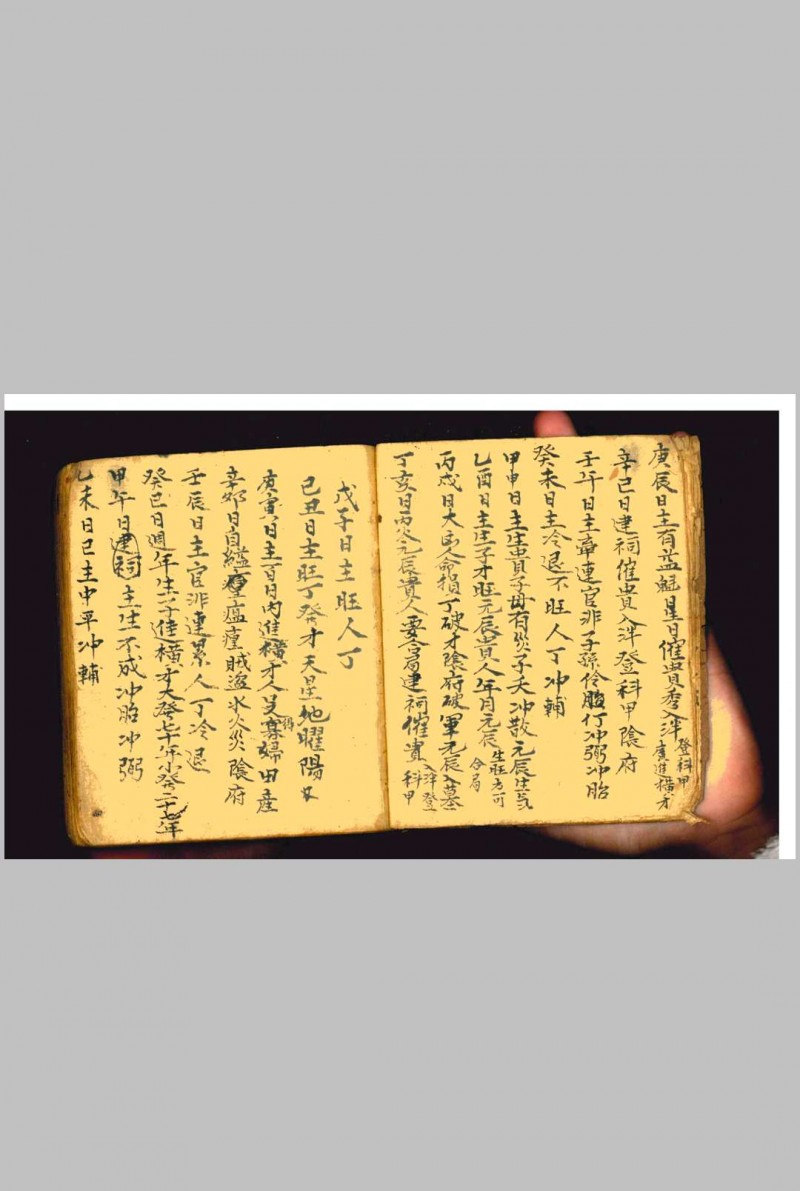 庚辰日主有益魁星日催貴秀入泮登科甲廣進橫才
辛巳日建祠催貴入泮登科甲陰府
壬午日主牽連官非子孫伶仃冲弼冲胎
癸未日主冷退不旺人丁冲輔
甲申日主生貴子母有災子夭冲散元辰生氣
乙酉日主生子才旺元辰貴人年月元辰生旺方可合局
丙戌日大凶人命損丁破才陰府破軍元辰入墓
丁亥日元辰貴人要合局建祠催貴入泮登科甲
戊子日主旺人丁
己丑日主旺丁發才天星地曜陽
庚寅日主百日內進橫才人得寡婦田產
辛卯日自縊瘟瘴賊盜水火災陰府
壬辰日主官非連累人丁冷退
癸巳日週年生子進橫才大發七十年小發二十七年
甲午日建祠主生不成冲胎冲弼
乙未日己主中平冲輔